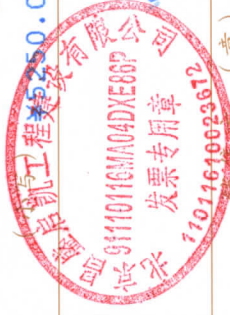 北京盛启凯工程建设有限公司
91110116MA04DXE86P
发票专用章
11011610023672
¥5250.0
(章)